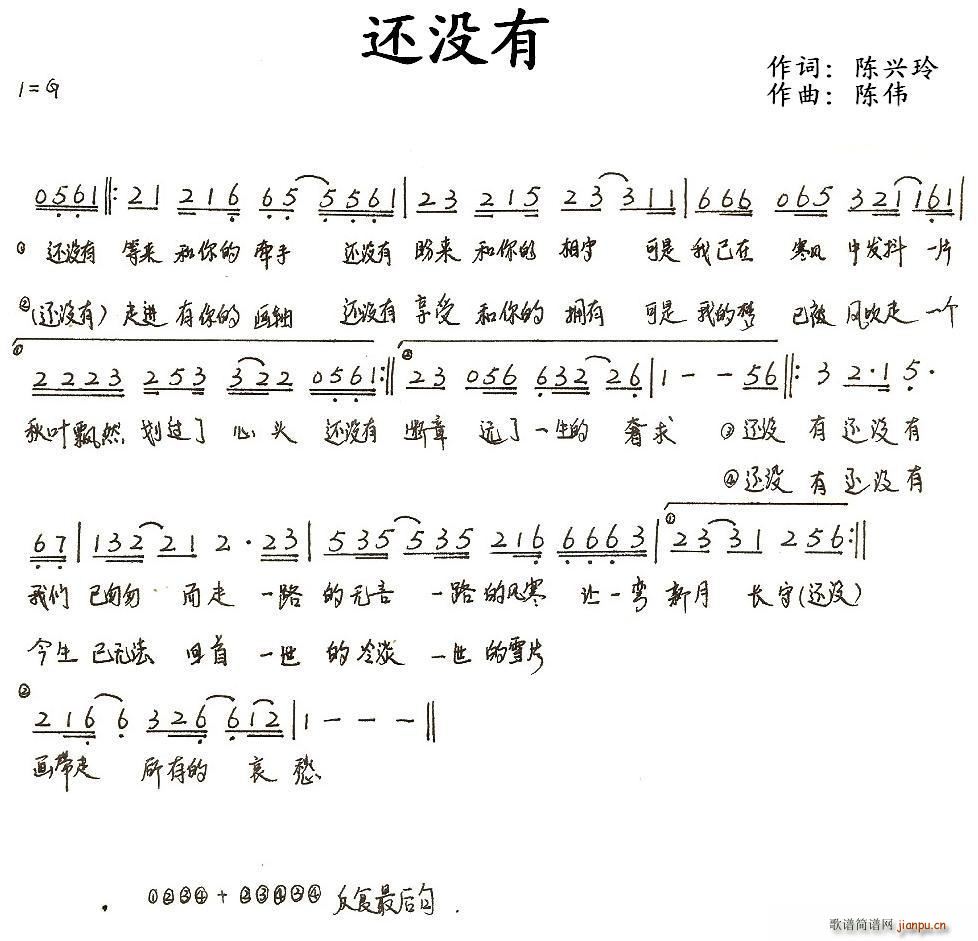 还没有
作词：陈兴玲
作曲：陈伟
1=G
0561 ‖: 21 216 65 5561 | 23 215 23 311 | 666 065 321 161 |
① 还没有 等来 和你的 牵手 还没有 盼来 和你的 相守 可是 我已在 寒风 中发抖 一片
②(还没有) 走进 有你的 画轴 还没有 享受 和你的 拥有 可是 我的梦 已被 风吹走 一个
① 2223 253 322 0561 :‖ ② 23 056 632 26 | 1 - - 56 ‖: 3 2·1 5·
秋叶飘然 划过了 心头 还没有 断章 远了 一生的 奢求 ③还没 有 还没有
④还没 有 还没有
67 | 132 21 2·23 | 535 535 216 6663 | ① 23 31 256 :‖
我们 已匆匆 而走 一路 的无言 一路的风寒 让一弯 新月 长守(还没)
今生 已无法 回首 一世 的冷淡 一世 的雪片
② 216 6 326 612 | 1 - - - ‖
画带走 所有的 哀愁
. ①②③④ + ②③④③④ 反复最后句 .
歌谱简谱网 jianpu.cn